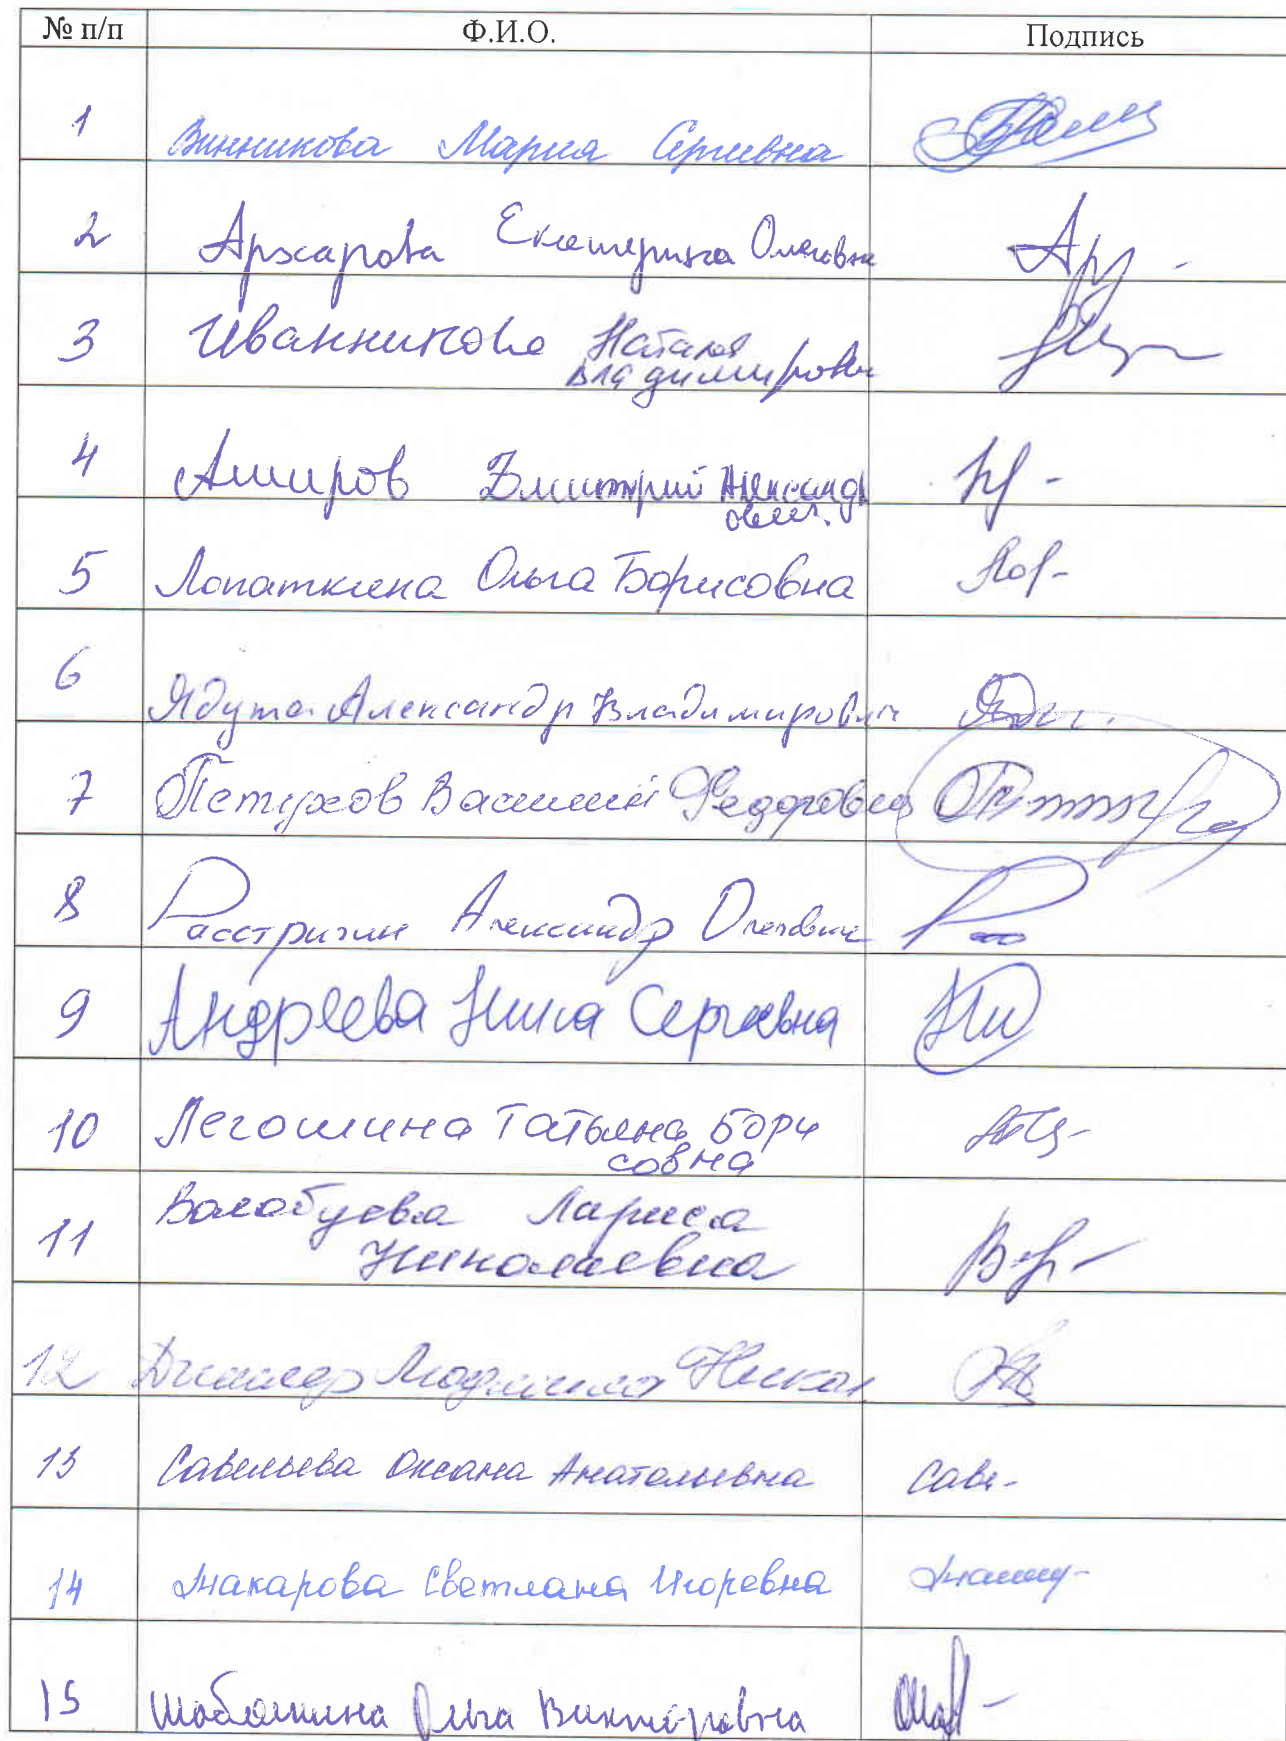 № п/п Ф.И.О. Подпись
1 Винникова Мария Сергиевна
2 Архарова Екатерина Олеговна Ар
3 Иванникова Наталья
Владимировн
4 Амиров Дмитрий Александр
ович.
5 Лопаткина Ольга Борисовна
6 Ядута Александр Владимирович
7 Петухов Василий Федорович
8 Расстригин Александр Олегович
9 Андреева Нина Сергеевна
10 Легошина Татьяна Бори
совна
11 Волобуева Лариса
Николаевна
12 Людмила Никол
13 Савельева Оксана Анатольевна Саве-
14 Макарова Светлана Игоревна
15 Ольга Викторовна